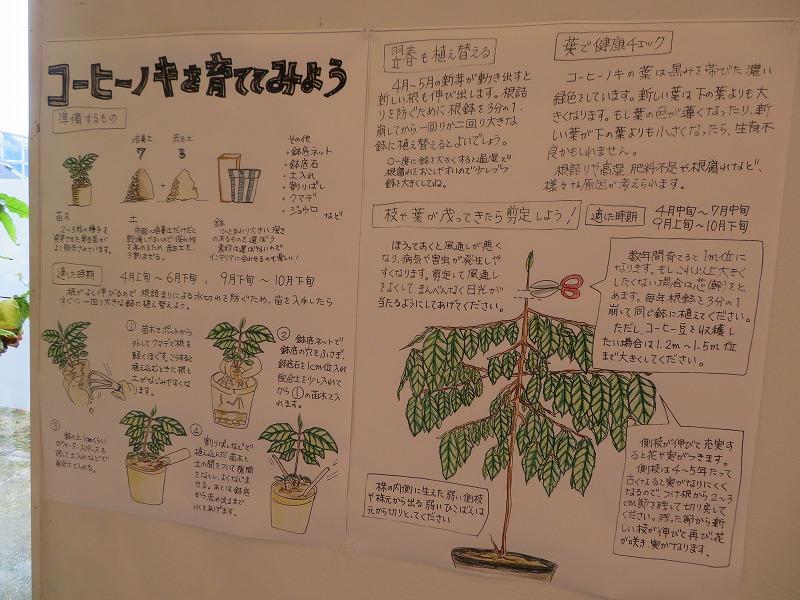 コーヒーノキを育ててみよう
準備するもの
培養土
7
赤玉土
3
その他
・鉢底ネット
・鉢底石
・土入れ
・割りばし
・クマデ
・ジョウロ
など
苗木
土
鉢
ひとまわり大きい、深さ
のあるものを選ぼう
素材は選ばないので
インテリアに合わせるのも楽しい!
適した時期
4月上旬〜6月下旬, 9月下旬〜10月下旬
根がよく伸びるので、根詰まりによる水切れを防ぐため、苗を入手したら
すぐに一回り大きな鉢に植え替えよう。
①
苗木をポットから
外してクマデで根を
軽くほぐす。こうすると
植え込むときに根と
土がなじみやすくな
ます。
②
鉢底ネットで
鉢底の穴をふさぎ、
鉢底石を1cm位入れ
配合土を少し入れて
から①の苗木を入
れます。
③
④
割りばしなどで
植え込んだ苗木と
土の間をついて隙間
をなくし、よくなじま
せる。あとは鉢底
から流れ出るまで水
をあげます。
翌春も植え替える
4月〜5月の新芽が動き出すと
新しい根も伸び出します。根詰
りを防ぐために根鉢を3分の1、
崩してから一回りか二回り大きな
鉢に植え替えるとよいでしょう。
◎一度に鉢を大きくすると過湿で
根腐れをおこしやすいので少しずつ
鉢を大きくしてね。
葉で健康チェック
コーヒーノキの葉は黒みを帯びた濃い
緑色をしています。新しい葉は下の葉よりも大
きくなります。もし葉の色が薄くなったり、新し
い葉が下の葉よりも小さくなったら、生育不
良かもしれません。
根詰りや高湿、肥料不足や根腐れなど、
様々な原因が考えられます。
枝や葉が茂ってきたら剪定しよう!
適した時期
4月中旬〜7月中旬
9月上旬〜10月下旬
ほうっておくと風通しが悪く
なり、病気や害虫が発生しや
すくなります。剪定して風通し
をよくして、まんべんなく日光が
当たるようにしてあげてください。
数年間育てると1m位に
なります。もしこれ以上大きく
したくない場合は芯(幹)をと
めます。毎年根鉢を3分の1
崩して同じ鉢に植えてください。
ただし、コーヒー豆を収穫し
たい場合は1.2m〜1.5m位
まで大きくしてください。
側枝が伸びて充実す
ると花や実がつきます。
側枝は4〜5年たって
古くなると実がなりにくく
なるので、つけ根から2〜3
cm、節を残して切り戻して
ください。残った節から新し
い枝が伸びて再び花
が咲き、実がなります。
株の内側に生えた弱い側枝
や株元から出る弱いひこばえは
元から切りとってください